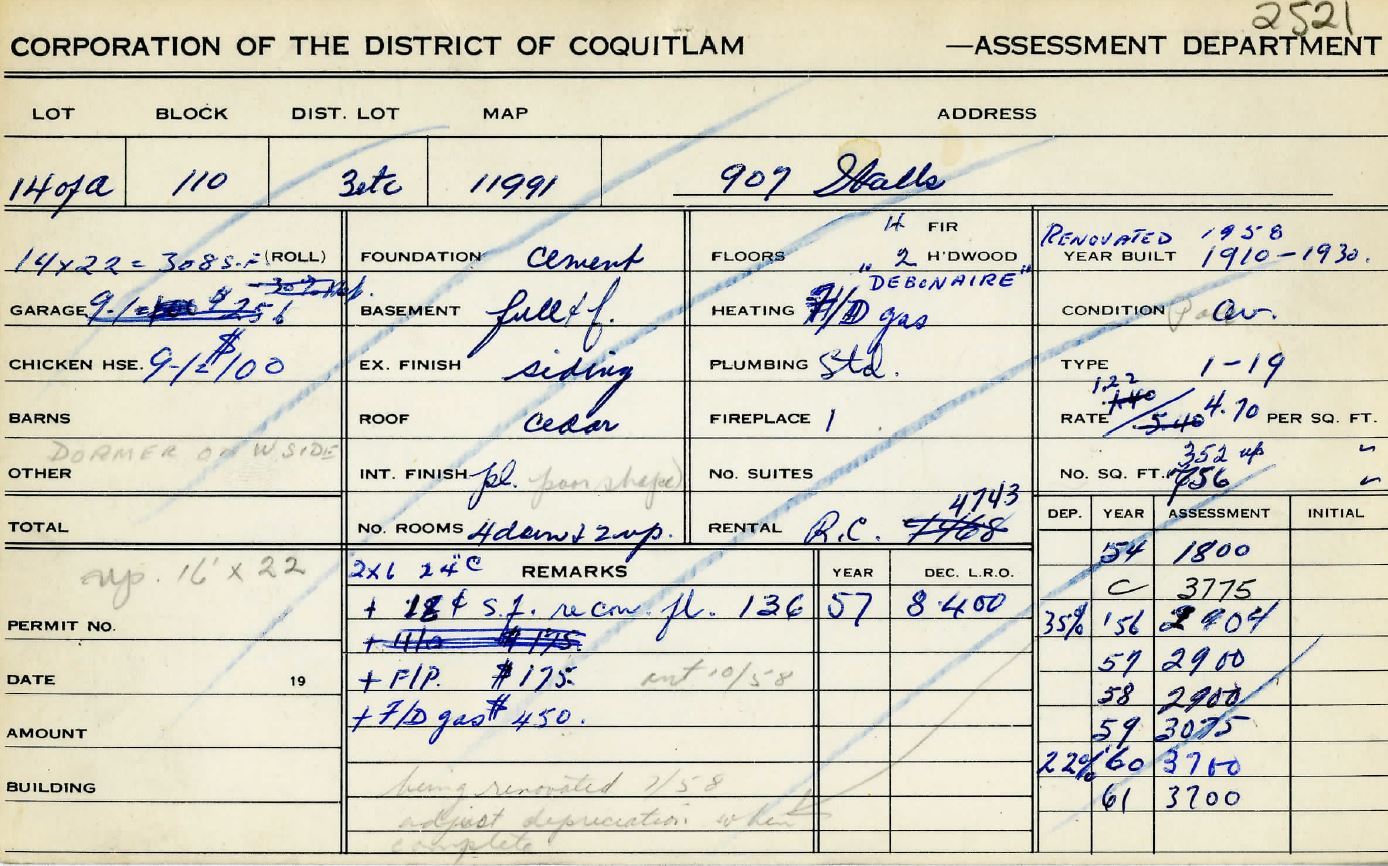 2521
CORPORATION OF THE DISTRICT OF COQUITLAM —ASSESSMENT DEPARTMENT
LOT BLOCK DIST. LOT MAP ADDRESS
14 of A 110 3etc 11991 907 Stalls
14x22 = 308 S.F. (ROLL)
GARAGE 9-1 = $256
CHICKEN HSE. 9-1/2 $100
BARNS
DORMER ON W SIDE
OTHER
TOTAL
up. 16' x 22
PERMIT NO.
DATE 19
AMOUNT
BUILDING
FOUNDATION cement
BASEMENT full & f.
EX. FINISH siding
ROOF cedar
INT. FINISH pl. poor shape
NO. ROOMS 4 down & 2 up.
4 FIR
FLOORS 2 H'DWOOD
"DEBONAIRE"
HEATING F/D gas
PLUMBING Std.
FIREPLACE 1
NO. SUITES
4743
RENTAL R.C. 4468
2x6 24"C REMARKS
+ 18¢ s.f. recon. fl. 136
+ H/o $175.
+ F/P. $175. 10/58
+ F/D gas $450.
being renovated 7/58
adjust depreciation when
complete
YEAR DEC. L.R.O.
57 8400
RENOVATED 1958
YEAR BUILT 1910-1930.
CONDITION Poor Av.
TYPE 1-19
1.22
1.40
RATE 5.40 4.70 PER SQ. FT.
352 up
NO. SQ. FT. 756
DEP. YEAR ASSESSMENT INITIAL
54 1800
C 3775
35% '56 2904
57 2900
58 2900
59 3075
22% '60 3700
61 3700